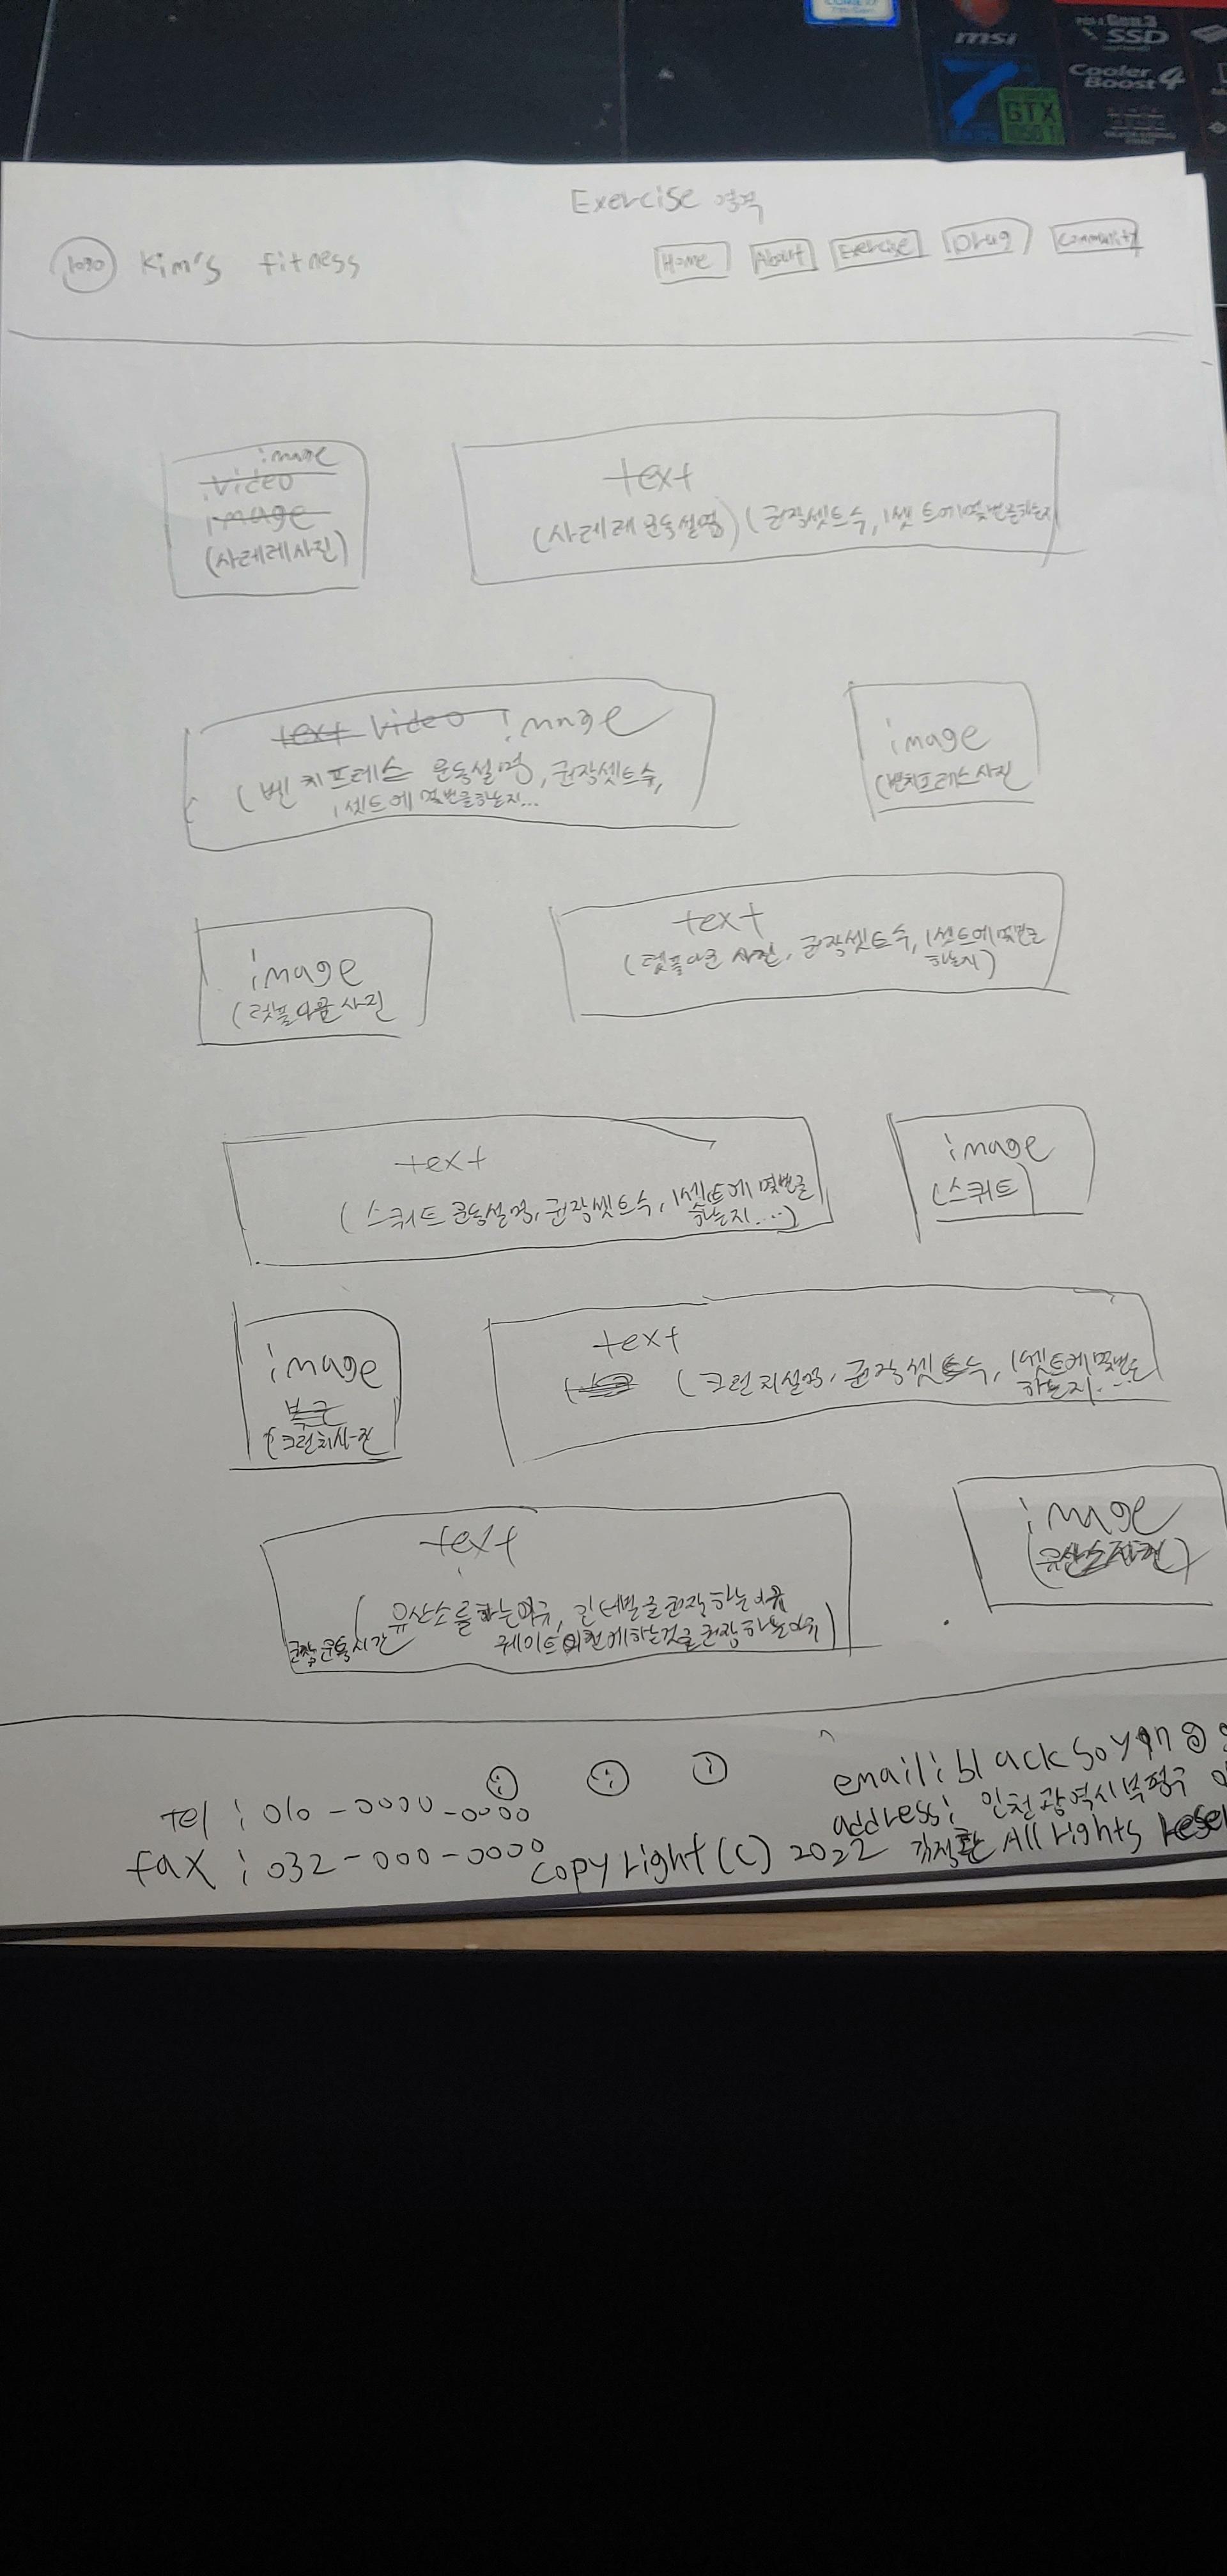 msi
Gen 3
SSD
Cooler
Boost 4
7
GTX
Exercise
logo
Kim's fitness
Home
About
Exercise
Drug
Community
image
video
image
(사레레사진)
text
(사레레 운동설명) (권장셋트수, 1셋트에 몇번을하는지
text video image
(벤치프레스 운동설명, 권장셋트수,
1셋트에 몇번을하는지...
image
(벤치프레스사진
image
(렛풀다운사진
text
(렛풀다운 사진, 권장셋트수, 1셋트에 몇번을
하는지)
text
(스쿼트 운동설명, 권장셋트수, 1셋트에 몇번을
하는지....)
image
(스쿼트)
image
복근
(크런치사진
text
(크런치설명, 권장셋트수, 1셋트에 몇번을
하는지....
text
(유산소를 하는이유, 인터벌을 권장하는이유
권장운동시간
웨이트 이전에하는것을 권장하는이유)
image
(유산소사진)
tel : 010-0000-0000
fax : 032-000-0000
email : blacksoy
address : 인천광역시부평구
copyright (C) 2022
All rights